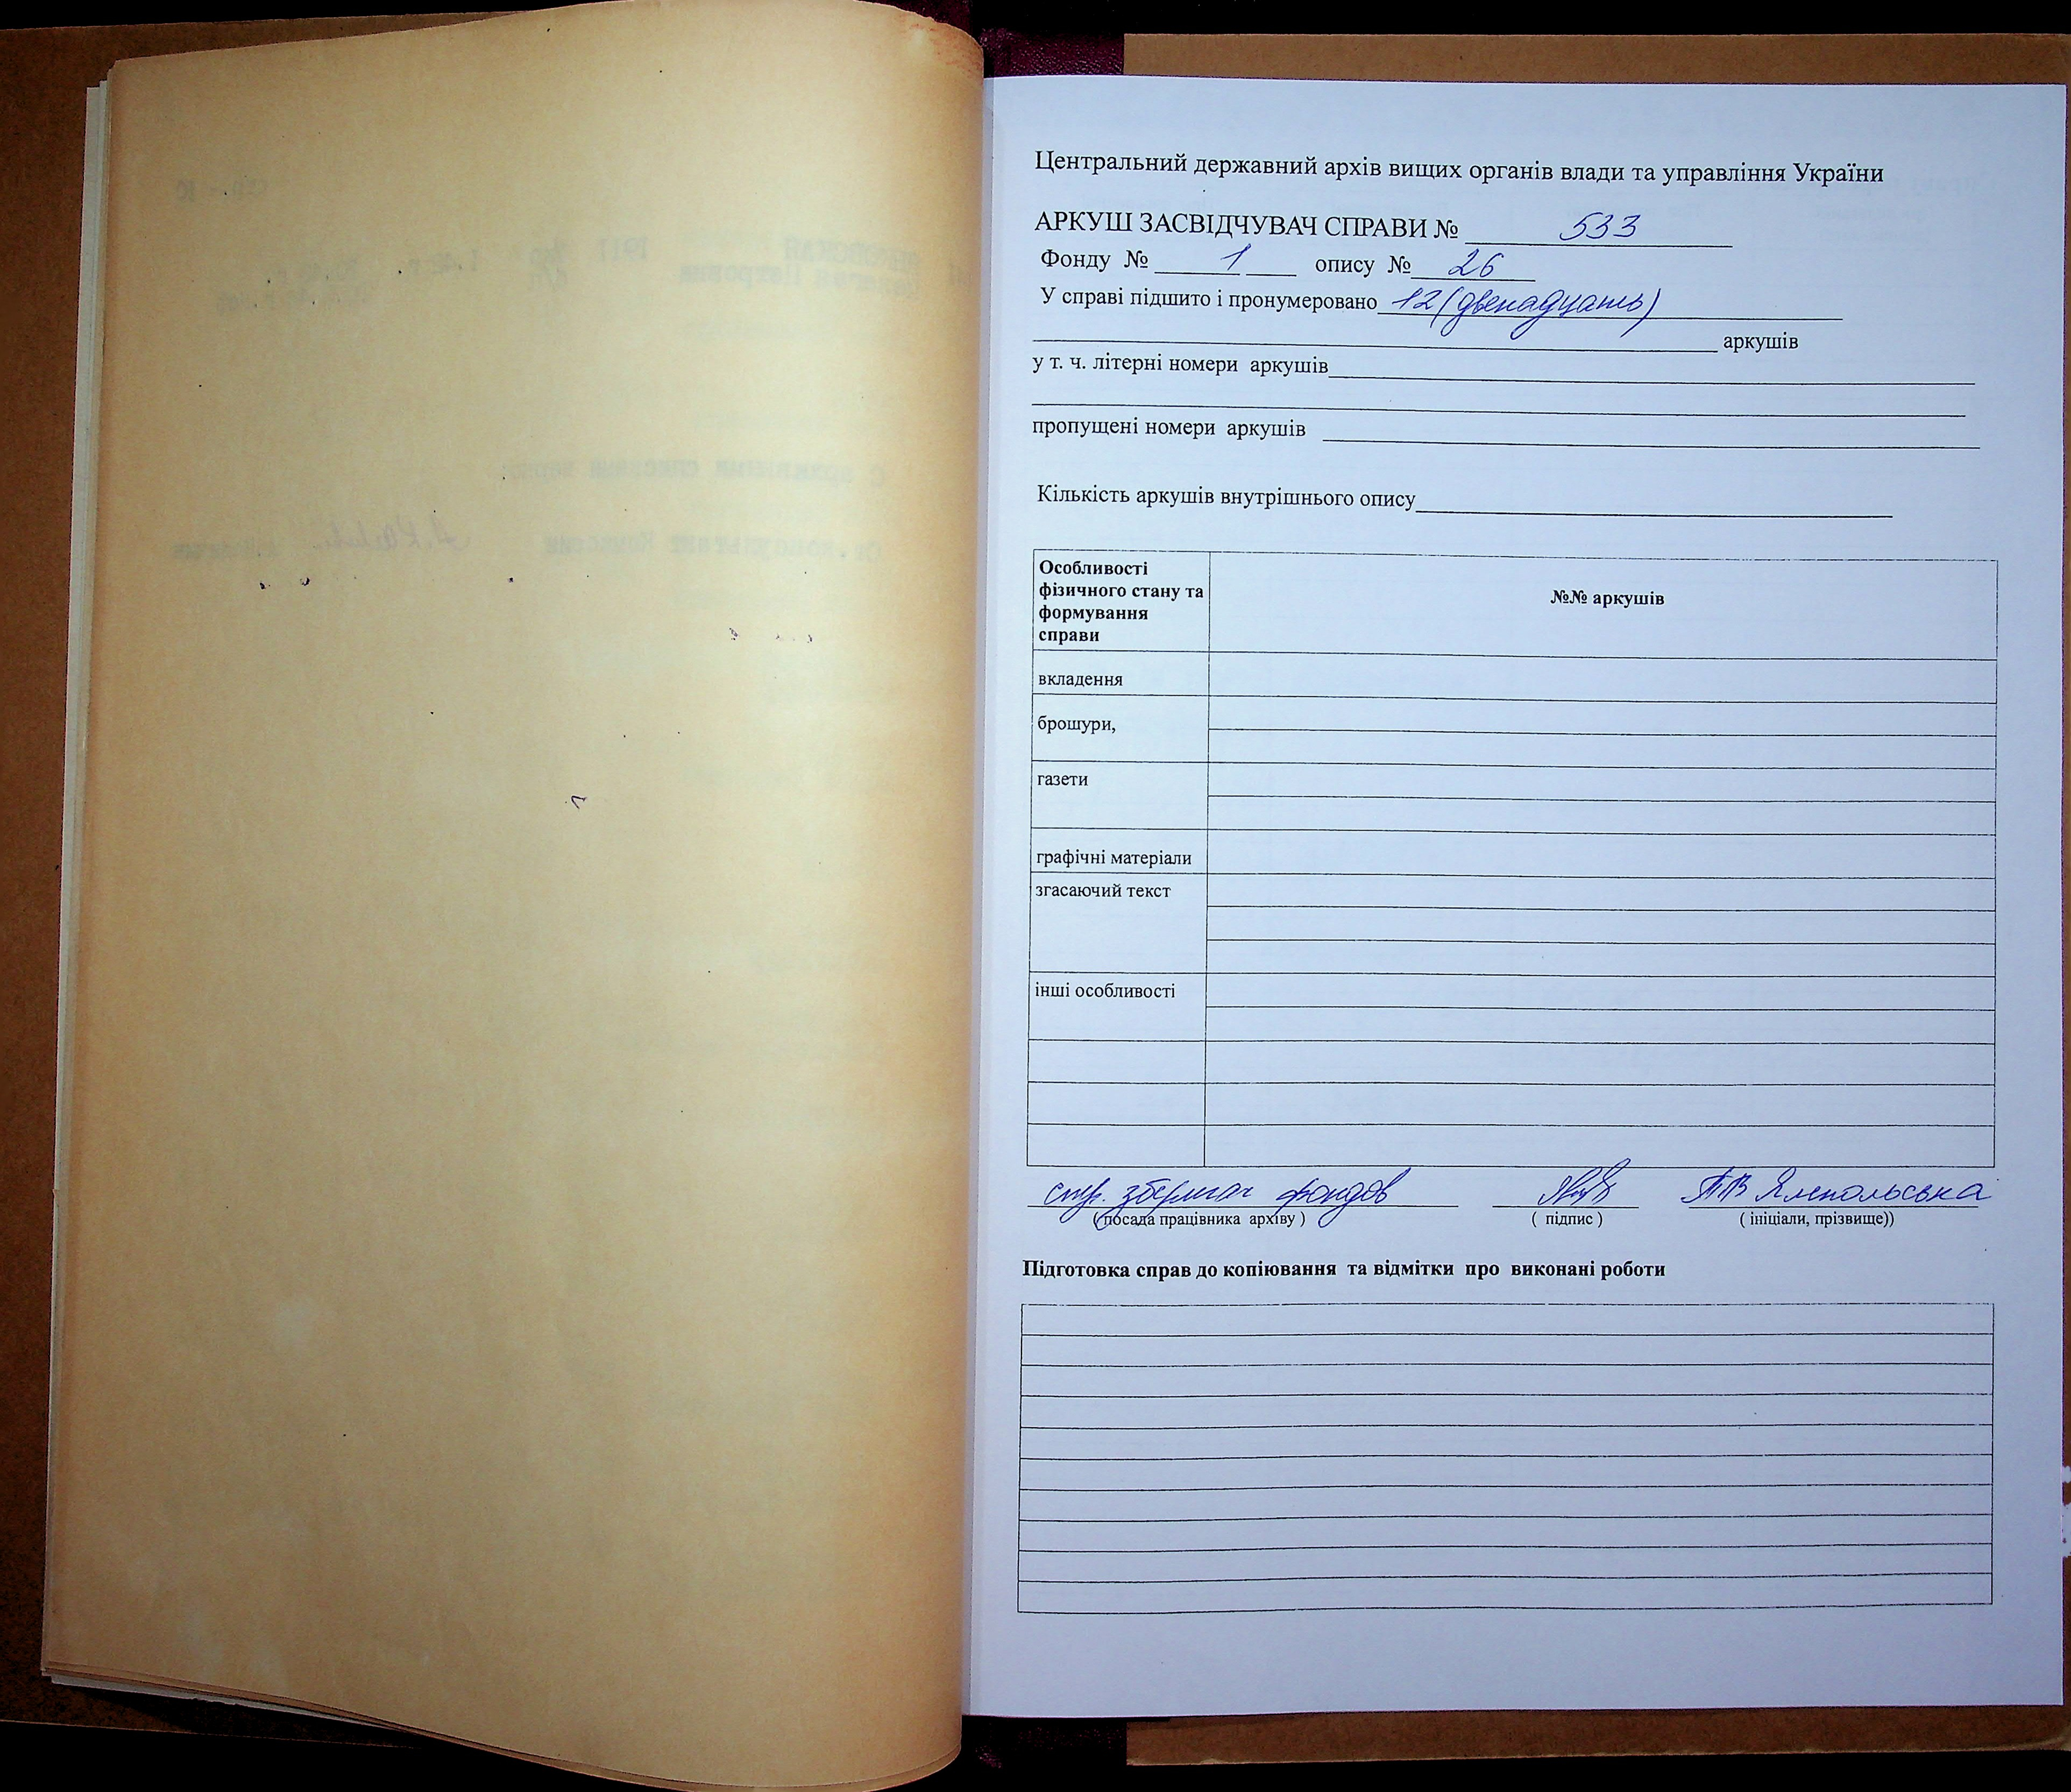 Центральний державний архів вищих органів влади та управління України
АРКУШ ЗАСВІДЧУВАЧ СПРАВИ № 533
Фонду № 1 опису № 26
У справі підшито і пронумеровано 12 (двенадцать)
аркушів
у т. ч. літерні номери аркушів
пропущені номери аркушів
Кількість аркушів внутрішнього опису
Особливості
фізичного стану та
формування
справи
№№ аркушів
вкладення
брошури,
газети
графічні матеріали
згасаючий текст
інші особливості
фондов
( посада працівника архіву )
( підпис )
( ініціали, прізвище))
Підготовка справ до копіювання та відмітки про виконані роботи